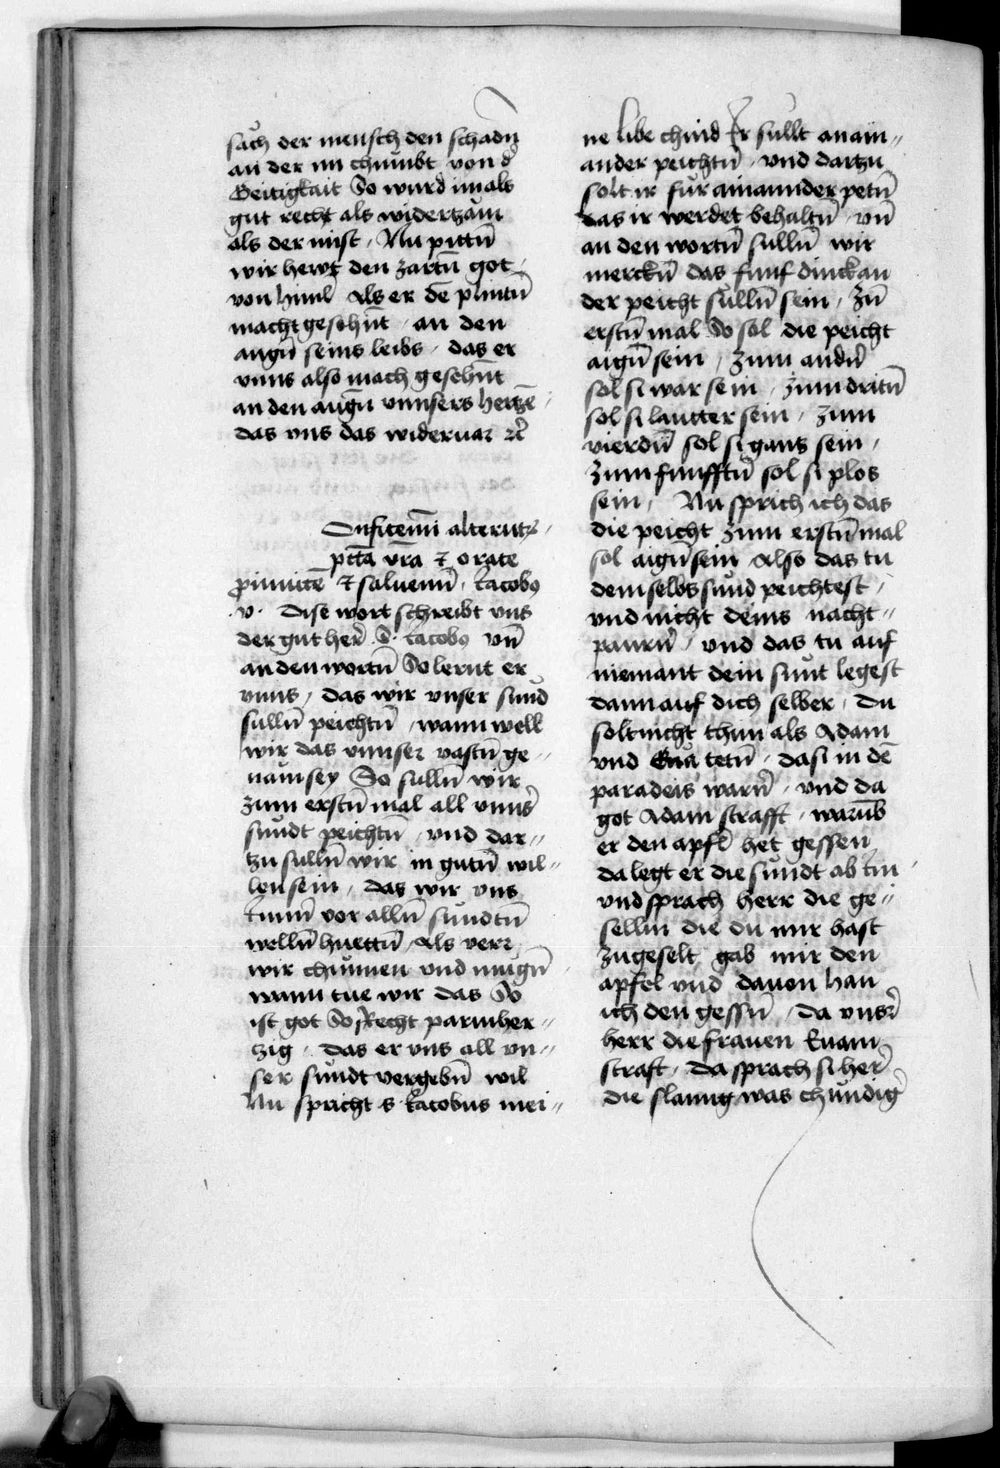 sach der mensch den schadn̄
an der im chumbt von d̓
Geitigkait So wurd im als
gut recht als widertzam
als der mist · Nu pittn̄
wir hewt den zartn̄ got
von himl̄ Als er dē plintn̄
macht gesehn̄t · an den
augn̄ seins leibs · das er
vnns also mach gesehn̄t
an den augn̄ vnnsers hertzē
das vns das widervar ꝛc̄
Onfitemī alterutꝝ
pctā vr̄a ⁊ orate
p̱inuicē ⁊ saluemī · Iacobꝯ
v · Dise wort schreibt vns
der gut her̄ S · Iacobꝯ vn̄
an den wortn̄ So lernt er
vnns · das wir vnser sund
sulln̄ peichtn̄ · wann well
wir das vnnser vastn̄ ge⸗
nam sey So sulln̄ wir
zum erstn̄ mal all vnns̓
sundt peichtn̄ · vnd dar⸗
tzu sulln̄ wir in gutn̄ wil⸗
len sein · das wir vns
fur̄n vor alln̄ sundtn̄
welln̄ huettn̄ · Als verr
wir chumen vnd mugn̄
wann tue wir das So
ist got So Recht parmher⸗
tzig · das er vns all vn⸗
ser sundt vergebn̄ wil
Nu spricht s · Iacobus mei⸗
ne libe chind Ir sullt anain⸗
ander peichtn̄ · vnd dartzu
solt ir fur ainannder petn̄
das ir werdet behaltn̄ · vn̄
an den wortn̄ sulln̄ wir
merckn̄ das funf dinck an
der peicht sulln̄ sein · Zu̅
erstn̄ mal So sol die peicht
aign̄ sein · Zum andn̓
sol si war sein · Zum dritn̄
sol si lautter sein · Zum
vierdn̄ sol si gantz sein ·
Zum funfftn̄ sol si plos
sein · Nu sprich ich das
die peicht zum erstn̄ mal
sol aign̄ sein Also das tu
dem selbs sund peichtest ·
vnd nicht deins nacht⸗
paurn̓ · vnd das tu auf
niemant dein sunt legest
dann auf dich selber · Du
solt nicht thun als Adam
vnd Eua tetn̄ · da si in dē
paradeis warn̄ · vnd da
got Adam strafft · warūb
er den apfl̄ het gessen
da legt er die sundt ab im
vnd sprach herr die ge⸗
sellin die du mir hast
zugeselt gab mir den
apfel vnd dauon han
ich den gessn̄ · Da vns̓
herr die frauen Euam
straft · Da sprach si her̄
die slanng was chundig̓